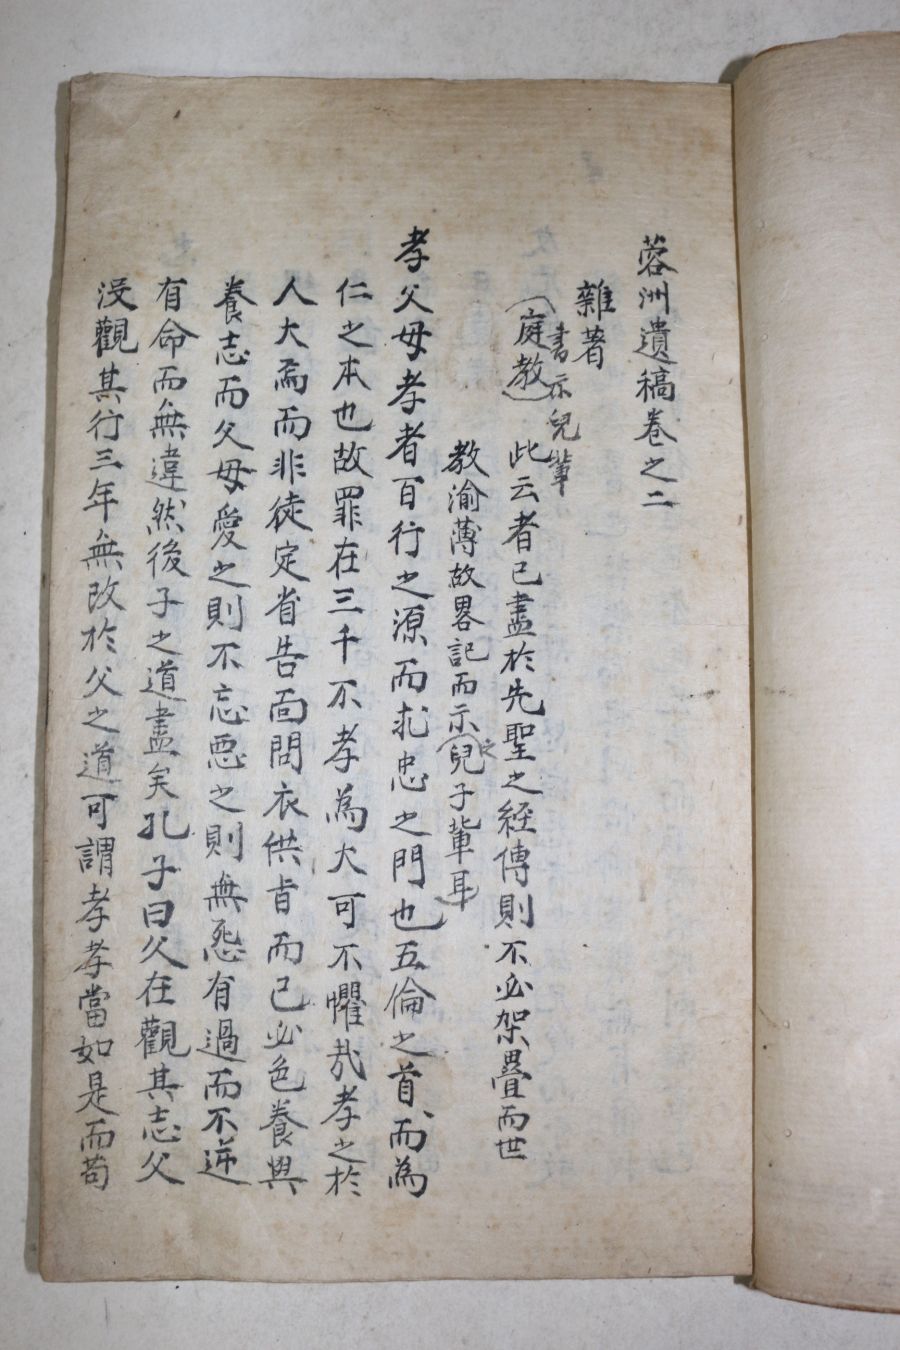 蓉洲遺稿卷之二
雜著
書示兒輩
（庭教）此云者已盡於先聖之經傳則不必架疊而世
教渝薄故畧記而示（之兒子輩耳）
孝父母孝者百行之源而求忠之門也五倫之首而為
仁之本也故罪在三千不孝為大可不懼哉孝之於
人大焉而非徒定省告面問衣供旨而已必色養與
養志而父母愛之則不忘惡之則無怨有過而不逆
有命而無違然後子之道盡矣孔子曰父在觀其志父
沒觀其行三年無改於父之道可謂孝孝當如是而苟